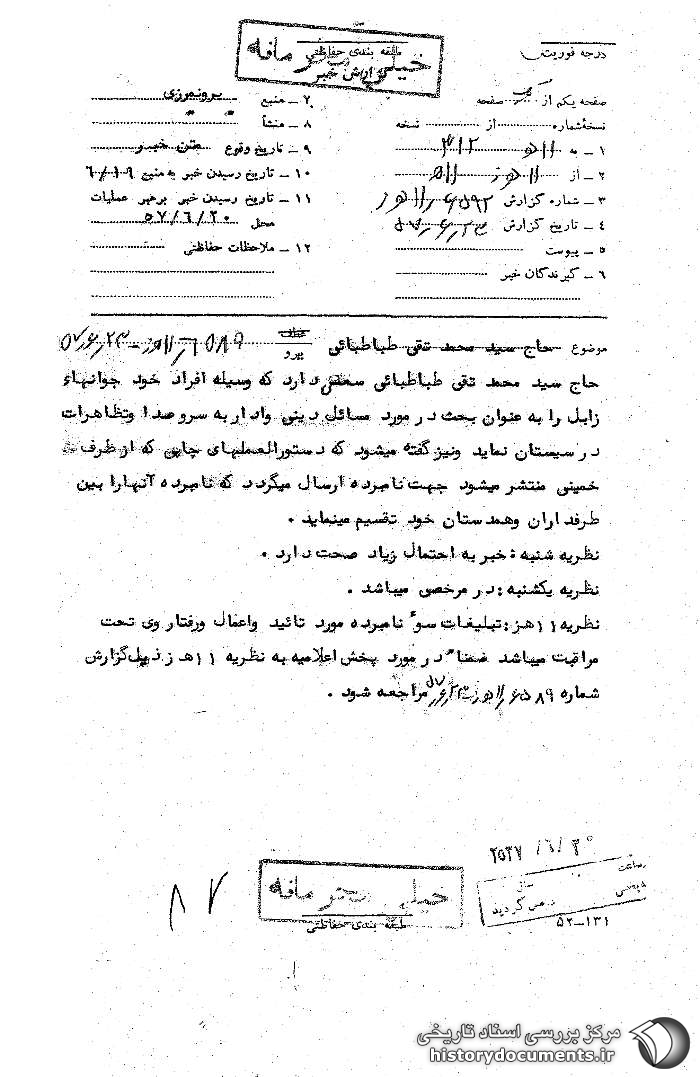 درجه فوریت
طبقه بندی حفاظتی
خیلی محرمانه
گزارش خبر
صفحه یکم از یک صفحه
نسخه شماره از نسخه
۱ ـ به ۳۱۲ ۱۱ه
۲ ـ از ۱۱هز ۱۱ه
۳ ـ شماره گزارش ۶۵۹۲/۱۱هز
۴ ـ تاریخ گزارش ۵۷/۶/۲۳
۵ ـ پیوست
۶ ـ گیرندگان خبر
۷ ـ منبع برونمرزی
۸ ـ منشأ
۹ ـ تاریخ وقوع متن خبر
۱۰ ـ تاریخ رسیدن خبر به منبع ۶/۱۹
۱۱ ـ تاریخ رسیدن خبر برهبر عملیات
محل ۵۷/۶/۲۰
۱۲ ـ ملاحظات حفاظتی
موضوع حاج سید محمد تقی طباطبائی عطف پیرو ۶۵۸۹/۱۱هز ـ ۵۷/۶/۲۳
حاج سید محمد تقی طباطبائی سعی دارد که وسیله افراد خود جوانهای
زابل را به عنوان بحث در مورد مسائل دینی وادار به سروصدا وتظاهرات
در سیستان نماید ونیز گفته میشود که دستورالعملهای چاپی که از طرف
خمینی منتشر میشود جهت نامبرده ارسال میگردد که نامبرده آنهارا بین
طرفداران وهمدستان خود تقسیم مینماید .
نظریه شنبه : خبر به احتمال زیاد صحت دارد .
نظریه یکشنبه : در مرخصی میباشد .
نظریه ۱۱هز : تبلیغات سوء نامبرده مورد تائید واعمال ورفتار وی تحت
مراقبت میباشد ضمناً در مورد پخش اعلامیه به نظریه ۱۱هز ذیل گزارش
شماره ۶۵۸۹/۱۱هز ـ ۵۷/۶/۲۳ مراجعه شود .
۲۵۳۷/۶/۳۰
ساعت
بایگانی گردید
۱۳۱ـ۵۲
خیلی محرمانه
طبقه بندی حفاظتی
۸۷
مرکز بررسی اسناد تاریخی
historydocuments.ir